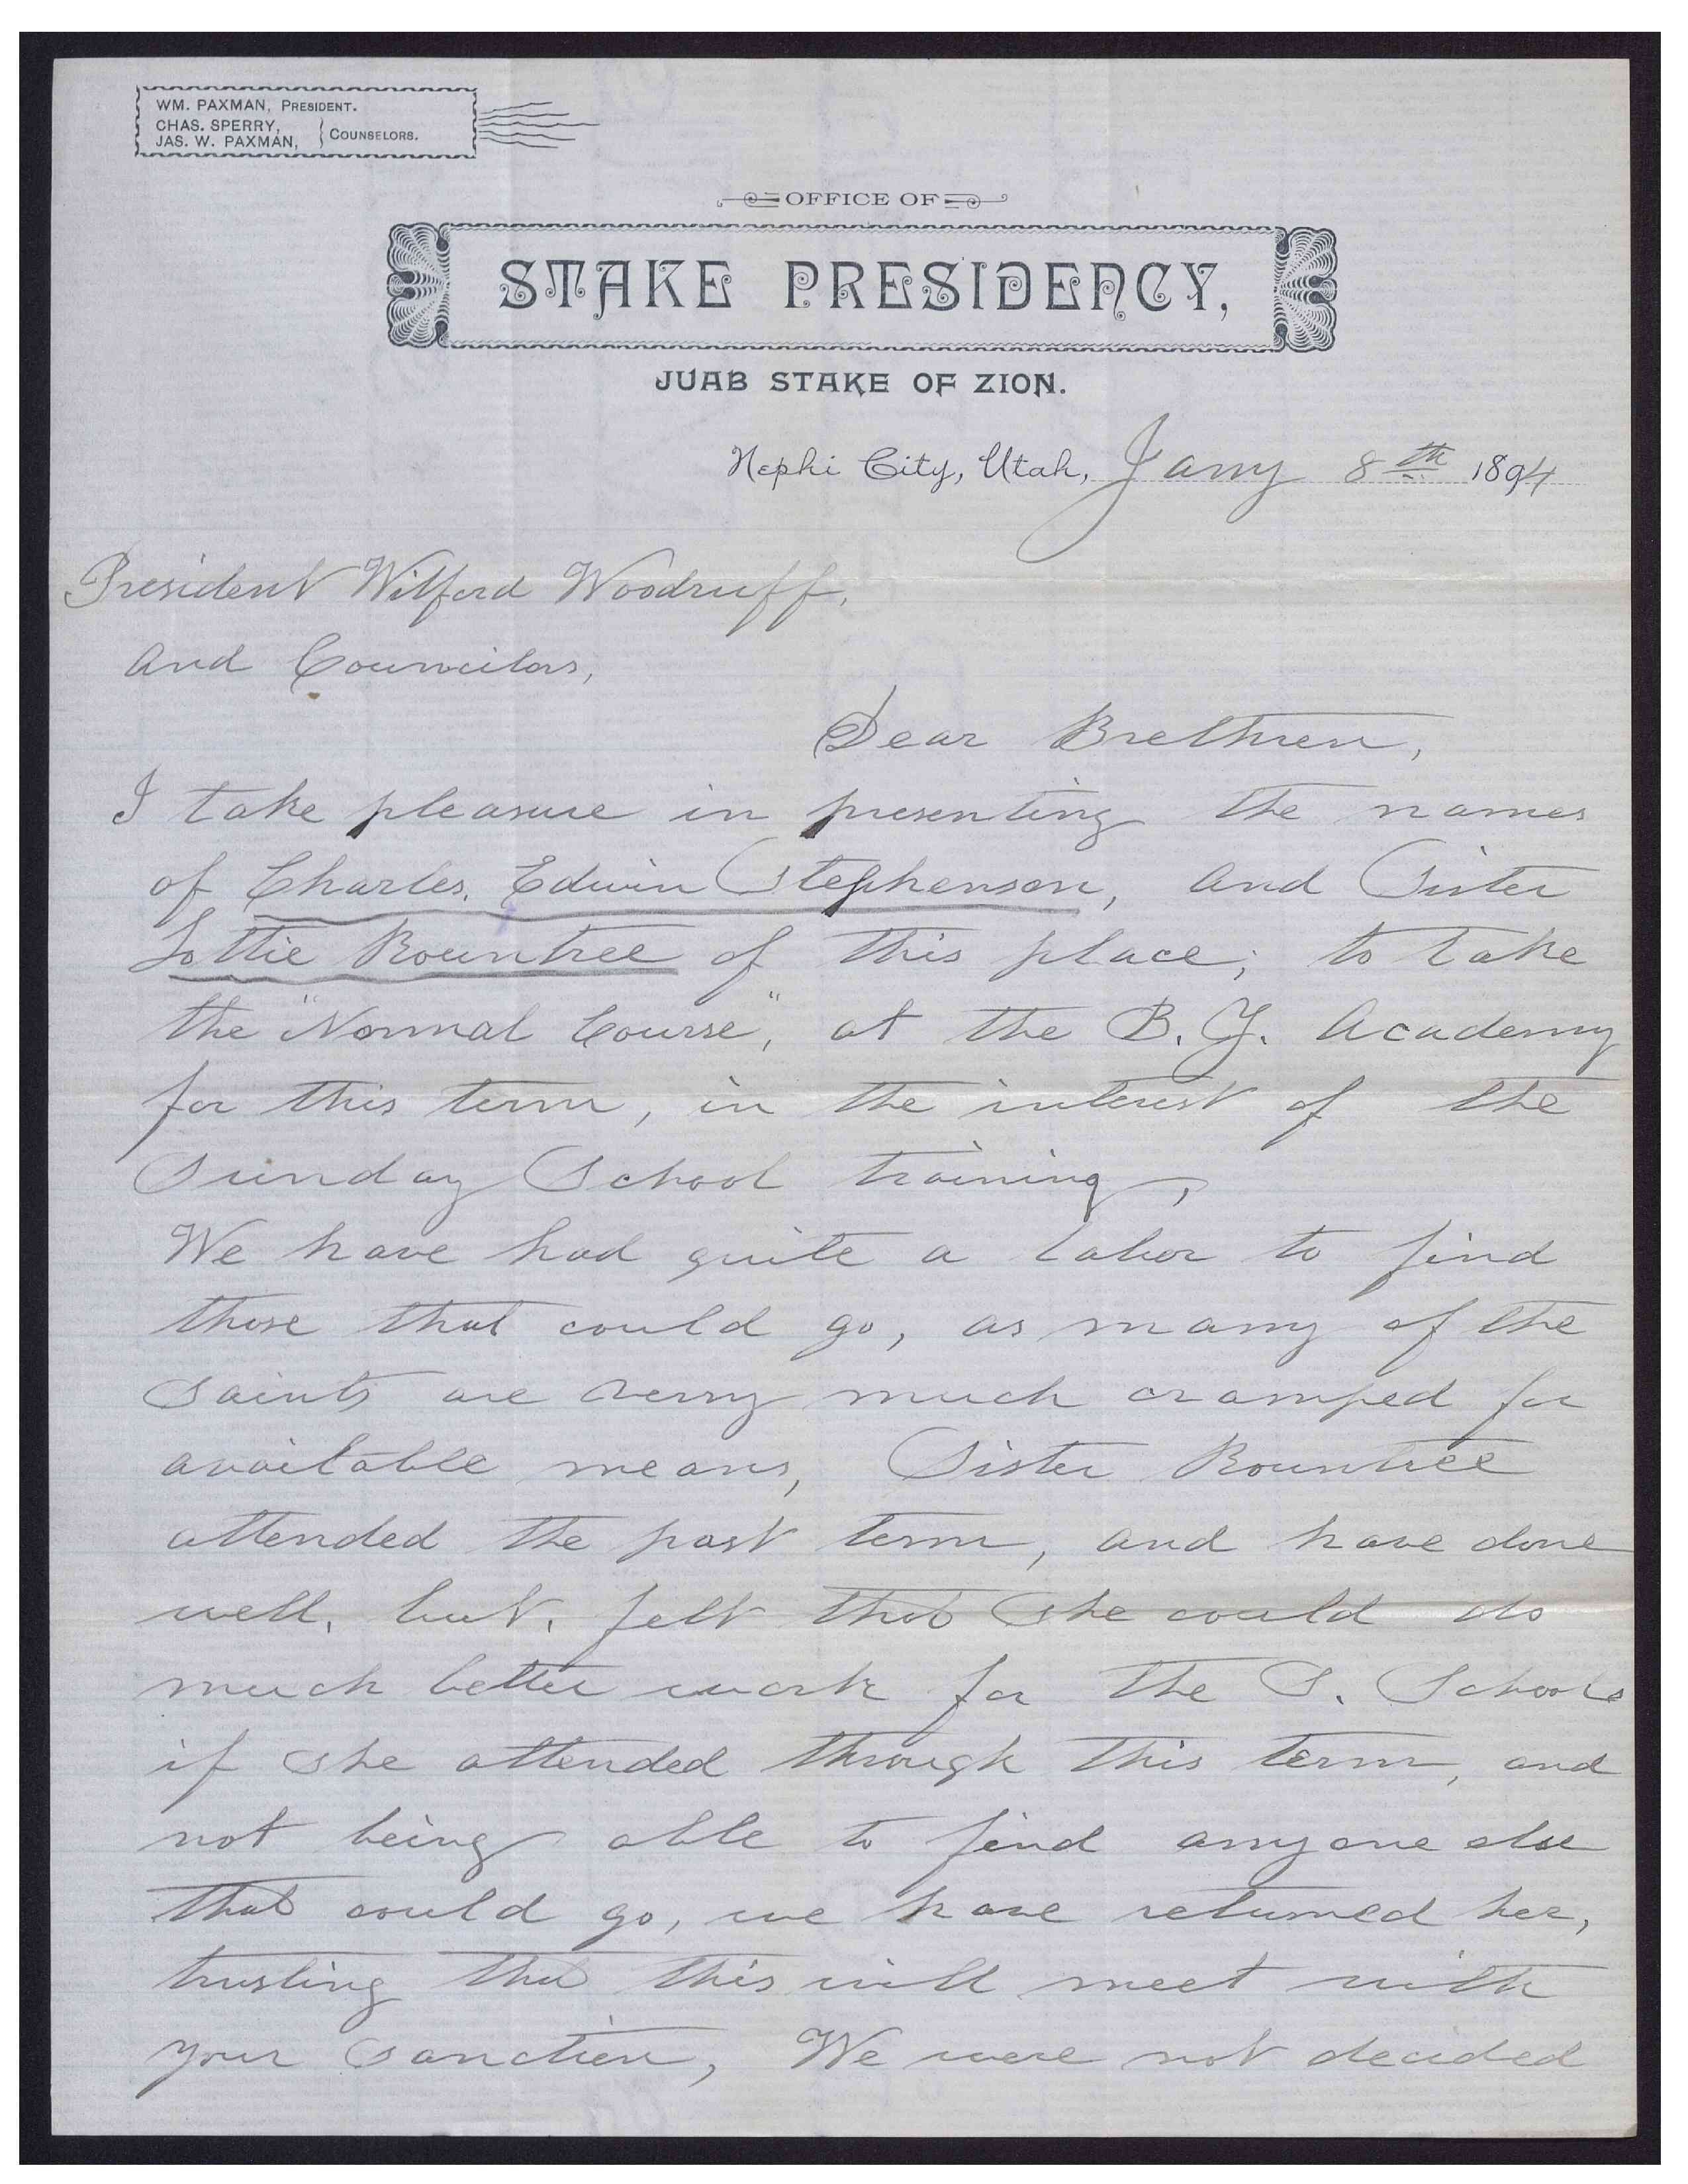 WM. PAXMAN, PRESIDENT.
CHAS. SPERRY,
JAS. W. PAXMAN, } COUNSELORS.
OFFICE OF
STAKE PRESIDENCY,
JUAB STAKE OF ZION.
Nephi City, Utah, Jany 8th 1894
President Wilford Woodruff,
and Councilors,
Dear Brethren,
I take pleasure in presenting the names
of Charles, Edwin Stephenson, and Sister
Lottie Rountree of this place; to take
the "Normal Course", at the B. Y. Academy
for this term, in the interest of the
Sunday School training,
We have had quite a labor to find
those that could go, as many of the
Saints are verry much cramped for
available means, Sister Rountree
attended the past term, and have done
well, but, felt that She could do
much better work for the S. Schools
if she attended through this term, and
not being able to find anyone else
that could go, we have returned her,
trusting that this will meet with
your Sanction, We were not decided